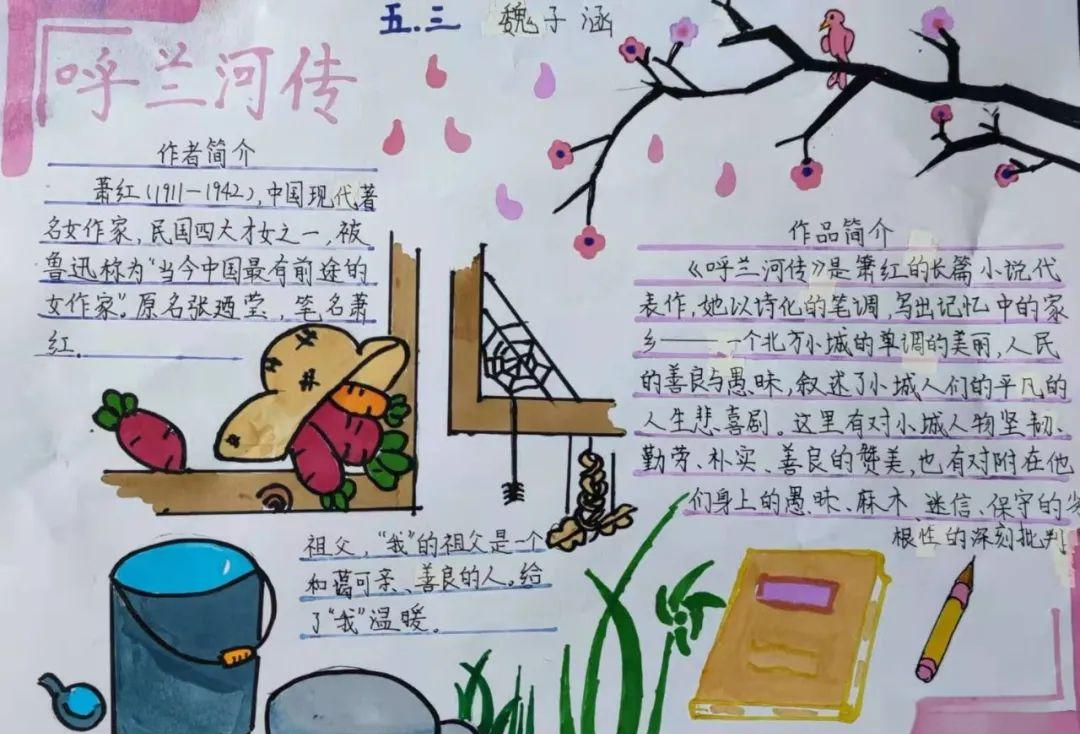 五.三 魏子涵
呼兰河传
作者简介
萧红(1911—1942),中国现代著
名女作家,民国四大才女之一,被
鲁迅称为“当今中国最有前途的
女作家”。原名张廼莹,笔名萧
红.
祖父,“我”的祖父是一个
和蔼可亲、善良的人。给
了“我”温暖。
作品简介
《呼兰河传》是箫红的长篇小说代
表作,她以诗化的笔调,写出记忆中的家
乡——一个北方小城的单调的美丽,人民
的善良与愚昧,叙述了小城人们的平凡的
人生悲喜剧。这里有对小城人物坚韧、
勤劳、朴实、善良的赞美,也有对附在他
们身上的愚昧、麻木、迷信、保守的劣
根性的深刻批判